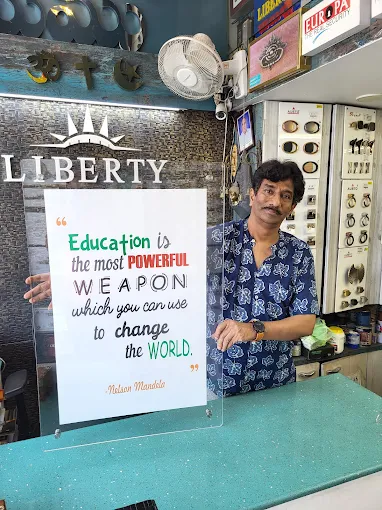 LIBERTY
EUROPA
LIBERTY
“
Education is
the most POWERFUL
WEAPON
which you can use
to change
the WORLD.
”
-Nelson Mandela